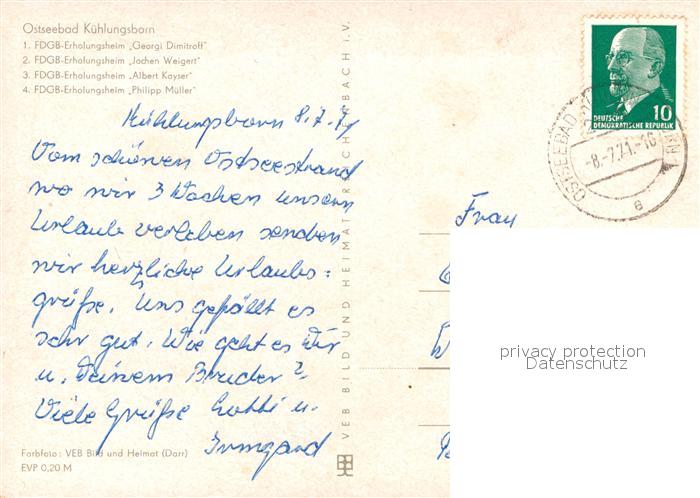 Ostseebad Kühlungsborn
1. FDGB-Erholungsheim „Georgi Dimitroff"
2. FDGB-Erholungsheim „Jochen Weigert"
3. FDGB-Erholungsheim „Albert Kayser"
4. FDGB-Erholungsheim „Philipp Müller"
Kühlungsborn 8.7.71
Vom schönen Ostseestrand
wo wir 3 Wochen unsern
Urlaub verleben senden
wir herzliche Urlaubs=
grüße. Uns gefällt es
sehr gut. Wie geht es Dir
u. Deinem Bruder?
Viele Grüße Lotti u.
Irmgard
Farbfoto: VEB Bild und Heimat (Darr)
EVP 0,20 M
VEB BILD UND HEIMAT REICHENBACH I. V.
DEUTSCHE
DEMOKRATISCHE REPUBLIK
10
OSTSEEBAD
-8.-7.71.-16
a
Frau
privacy protection
Datenschutz